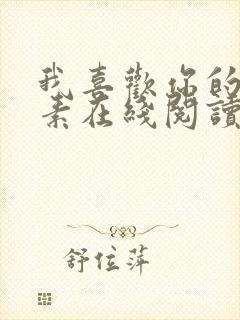 我喜歡你的
素在綫閱讀
舒位萍